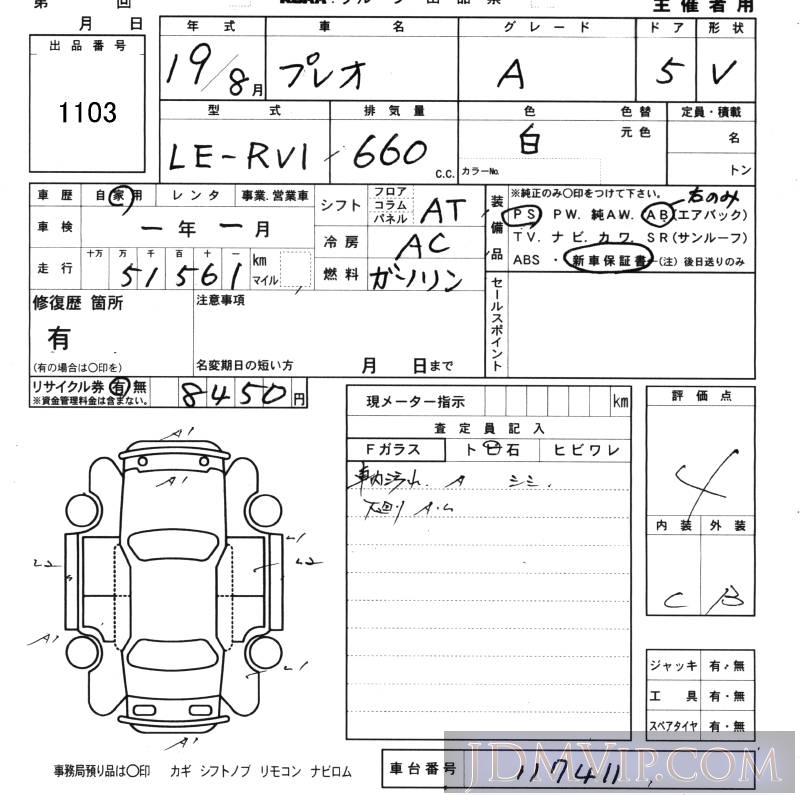 第 回
主催者用
月 日
出品番号
1103
年式 車名 グレード ドア 形状
19/8月 プレオ A 5 V
型式 排気量 色 色替 定員・積載
LE-RV1 660 C.C. 白 元色 名
カラーNo. トン
車歴 自家用 レンタ 事業.営業車
車検 一年一月
走行 十万 万 千 百 十 一
51561 km マイル
シフト フロア コラム パネル AT
冷房 AC
燃料 ガソリン
装備品 ※純正のみ〇印をつけて下さい。 右のみ
PS PW. 純AW. AB(エアバック)
TV. ナビ. カワ. SR(サンルーフ)
ABS ・ 新車保証書 (注) 後日送りのみ
修復歴 箇所
有
(有の場合は〇印を)
注意事項
名変期日の短い方 月 日まで
セールスポイント
リサイクル券 有 無
※資金管理料金は含まない。
8450円
現メーター指示 km
査定員記入
Fガラス ト ビ 石 ヒビワレ
車内汚れ. A シミ.
下廻り A.
評価点
4
内装 外装
C B
A1
A1
L1
L2 L2
A1
L1
A1
ジャッキ 有・無
工具 有・無
スペアタイヤ 有・無
事務局預り品は〇印 カギ シフトノブ リモコン ナビロム
車台番号 117411
JDMVIP.COM